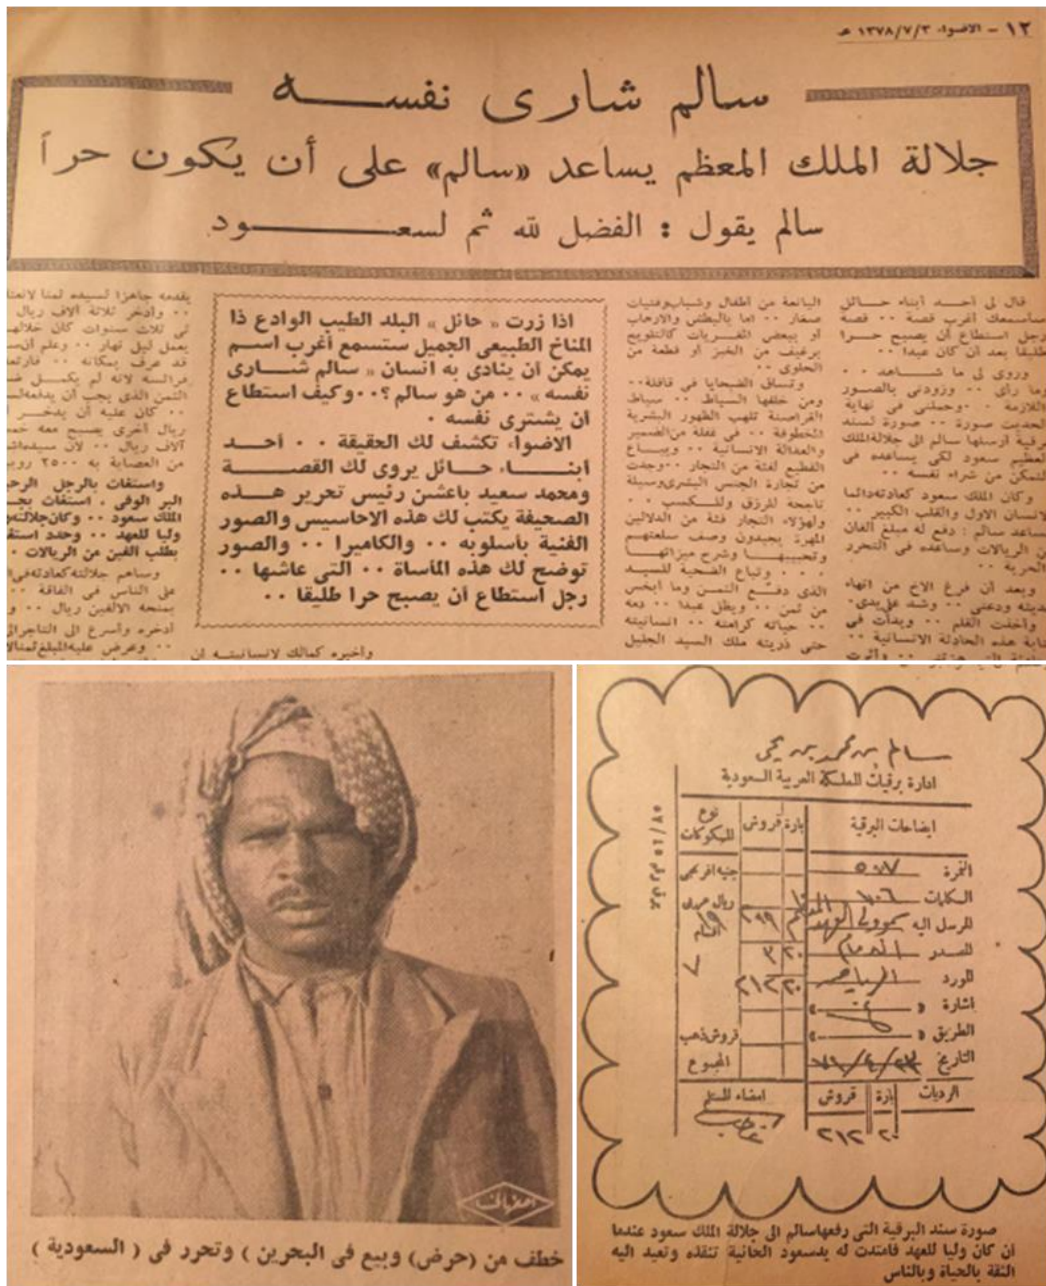 ١٢ - الاضواء ١٣٧٨/٧/٣ هـ
سالم شارى نفسه
جلالة الملك المعظم يساعد «سالم» على أن يكون حراً
سالم يقول : الفضل لله ثم لسعود
قال لى أحد أبناء حائل
سأسمعك أغرب قصة ٠٠ قصة
رجل استطاع أن يصبح حرا
طليقا بعد أن كان عبدا ٠٠
وروى لى ما شاهد ٠٠
وما رأى ٠٠ وزودنى بالصور
اللازمة ٠٠ وحملنى فى نهاية
الحديث صورة ٠٠ صورة لسند
برقية أرسلها سالم الى جلالة الملك
المعظم سعود لكى يساعده فى
التمكن من شراء نفسه ٠٠
وكان الملك سعود كعادته دائما
الانسان الاول والقلب الكبير ٠٠
ساعد سالم : دفع له مبلغ الفان
من الريالات وساعده فى التحرر
الحرية ٠٠
وبعد أن فرغ الاخ من انهاء
حديثه ودعنى ٠٠ وشد على يدى
وأخذت القلم ٠٠ وبدأت فى
كتابة هذه الحادثة الانسانية ٠٠
اليانعة من أطفال وشباب وفتيات
صغار ٠٠ اما بالبطش والارهاب
أو ببعض المغريات كالتلويح
برغيف من الخبز أو قطعة من
الحلوى ٠٠
وتساق الضحايا فى قافلة ٠٠
ومن خلفها السياط ٠٠ سياط
القراصنة تلهب الظهور البشرية
المخطوفة ٠٠ فى غفلة من الضمير
والعدالة الانسانية ٠٠ ويباع
القطيع لفئة من التجار ٠٠ وجدت
من تجارة الجنس البشرى وسيلة
ناجحة للرزق وللكسب ٠٠
ولهؤلاء التجار فئة من الدلالين
المهرة يجيدون وصف سلعتهم
وتحبيبها وشرح ميزاتها
٠٠٠ وتباع الضحية للسيد
الذى دفع الثمن وما أبخس
من ثمن ٠٠ ويظل عبدا ٠٠ دمه
٠٠٠ حياته كرامته ٠٠ انسانيته
حتى ذريته ملك السيد الجليل
اذا زرت « حائل » البلد الطيب الوادع ذا
المناخ الطبيعى الجميل ستسمع أغرب اسم
يمكن أن ينادى به انسان « سالم شارى
نفسه » ٠٠ من هو سالم ؟ ٠٠ وكيف استطاع
أن يشترى نفسه ٠
الاضواء تكشف لك الحقيقة ٠٠ أحد
أبناء حائل يروى لك القصة
ومحمد سعيد باعشن رئيس تحرير هذه
الصحيفة يكتب لك هذه الاحاسيس والصور
الفنية بأسلوبه ٠٠ والكاميرا ٠٠ والصور
توضح لك هذه المأساة ٠٠ التى عاشها ٠٠
رجل استطاع أن يصبح حرا طليقا ٠٠
وأخيره كمالك لانسانيته أن
يقدمه جاهزا لسيده ثمنا
٠٠ وادخر ثلاثة آلاف ريال
فى ثلاث سنوات كان خلالها
يعمل ليل نهار ٠٠ وعلم
قد عرف بمكانه ٠٠
فرائسه لانه لم يكمل
الثمن الذى يجب أن
٠٠ كان عليه أن يدخر
ريال أخرى يصبح معه
آلاف ريال ٠٠ لان سيده
من العصابة به ٢٥٠٠
واستغاث بالرجل
البر الوفى ٠ استغاث
الملك سعود ٠٠ وكان جلالته
وليا للعهد ٠٠ وحدد
بطلب الفين من الريالات ٠٠
وساهم جلالته كعادته
على الناس فى الفاقة ٠٠
بمنحه الالفين ريال ٠٠
ادخره وأسرع الى التاجر
٠٠ وعرض عليه المبلغ ثمنا
خطف من (حرض) وبيع فى البحرين) وتحرر فى (السعودية)
سالم بن محمد بن يحيى
ادارة برقيات المملكة العربية السعودية
ايضاحات البرقية
بارة
قروش
نوع المسكوكات
النمرة
٥٠٧
جنيه افرنجى
الكلمات
١٠٦
ريال عربى
المرسل اليه
سمو ولى العهد المعظم
٢٩٩
المصدر
الدمام
المورد
الرياض
٢٠ ٢١٢
اشارة
الطريق
قروش ذهب
التاريخ
المجموع
الرديات
بارة
قروش
امضاء المستلم
٢٠ ٢١٢
صورة سند البرقية التى رفعها سالم الى جلالة الملك سعود عندما
ان كان وليا للعهد فامتدت له يد سعود الحانية تنقذه وتعيد اليه
الثقة بالحياة وبالناس